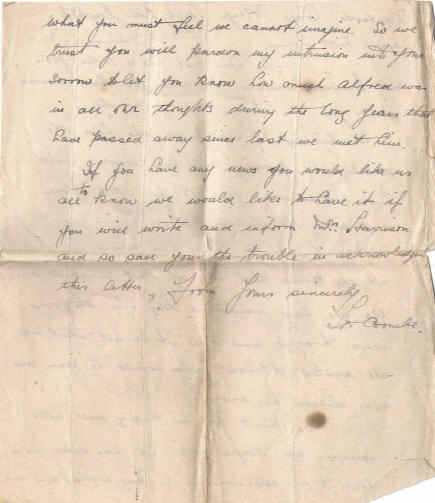 what you must feel we cannot imagine. So we
trust you will pardon my intrusion into your
sorrow & let you know how much Alfred was
in all our thoughts during the long years that
have passed away since last we met him.
If you have any news you would like us
all to know we would like to have it if
you will write and inform Mrs. Harrison
and so save you the trouble in acknowledging
this letter. From Yours sincerely
Coombe.